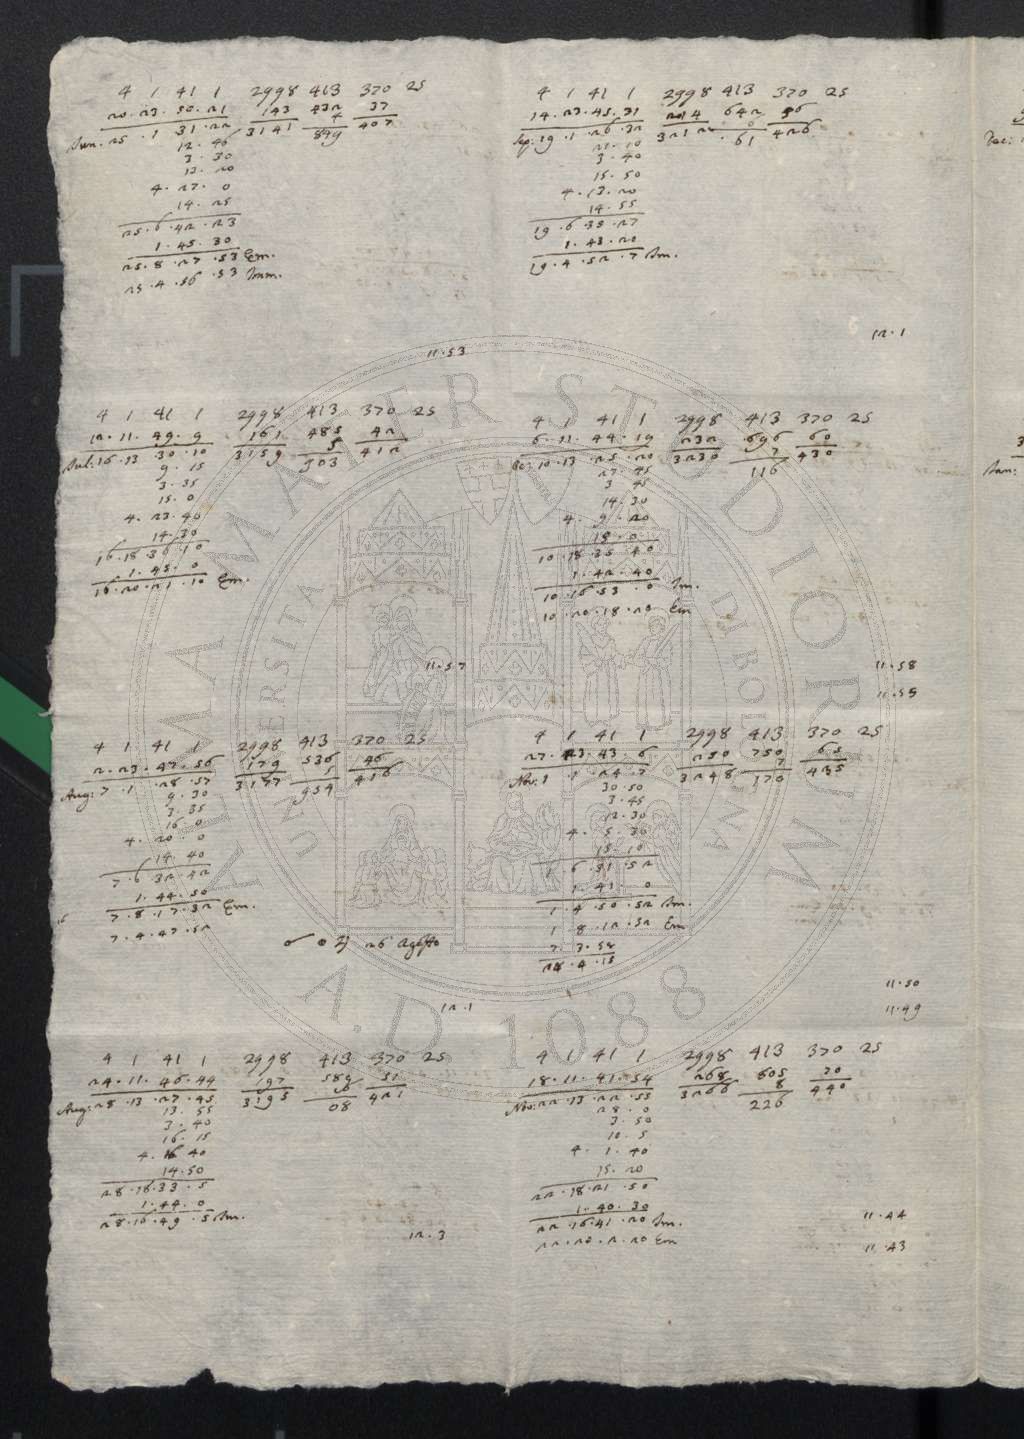 4 1 41 1 2998 413 370 25
20.23.50.21 143 432 37
Jun. 25.1 31.22 3141 4 407
12.46 849
3.30
13.20
4.27.0
14.25
25.6.42.23
1.45.30
25.8.27.53 Em.
25.4.56.53 Imm.
11.53
4 1 41 1 2998 413 370 25
12.11.49.9 161 485 42
Jul: 16.13 30.10 3159 5 412
9.15 903
3.35
15.0
4.23.40
14.30
16.18.36.10
1.45.0
16.20.21.10 Em.
11.57
4 1 41 1 2998 413 370 25
2.23.47.56 179 536 46
Aug: 7.1.28.57 3177 5 416
9.30 954
3.35
16.0
4.20.0
14.40
7.6.32.42
1.44.50
7.8.17.32 Em.
7.4.47.52
☍ ☉ ♃ 26 Agosto
12.1
4 1 41 1 2998 413 370 25
24.11.46.44 197 589 51
Aug: 28.13.27.45 3195 6 421
13.55 08
3.40
16.15
4.16 40
14.50
28.18.33.5
1.44.0
28.16.49.5 Im.
12.3
4 1 41 1 2998 413 370 25
14.23.45.31 214 642 56
Sep: 19.1.26.32 3212 0 426
21.10 61
3.40
15.50
4.13.20
14.55
19.6 35.27
1.43.20
19.4.52.7 Im.
12.1
4 1 41 1 2998 413 370 25
6.11.44.19 232 696 60
Oc: 10.13.25.20 3230 7 430
27.45 116
3 45
14.30
4.9.20
15.0
10.18.35.40
1.42.40
10.16.53.0 Im.
10.20.18.20 Em
11.58
11.55
4 1 41 1 2998 413 370 25
27.23.43.6 250 750 65
Nov: 1.1.24.7 3248 7 435
30.50 170
3.45
12.30
4.5.30
15.10
1.6.31.52
1.41.0
1.4.50.52 Im.
1.8.12.52 Em
7.3.52
28.4.15
11.50
11.49
4 1 41 1 2998 413 370 25
18.11.41.54 268 805 70
Nov: 22.13.22.55 3266 8 440
28.0 226
3.50
10.5
4.1.40
15.20
22.18.21.50
1.40.30
22.16.41.20 Im.
22.20.2.20 Em
11.44
11.43
Dec:
Jan:
ALMA MATER STUDIORUM
UNIVERSITÀ DI BOLOGNA
A.D. 1088